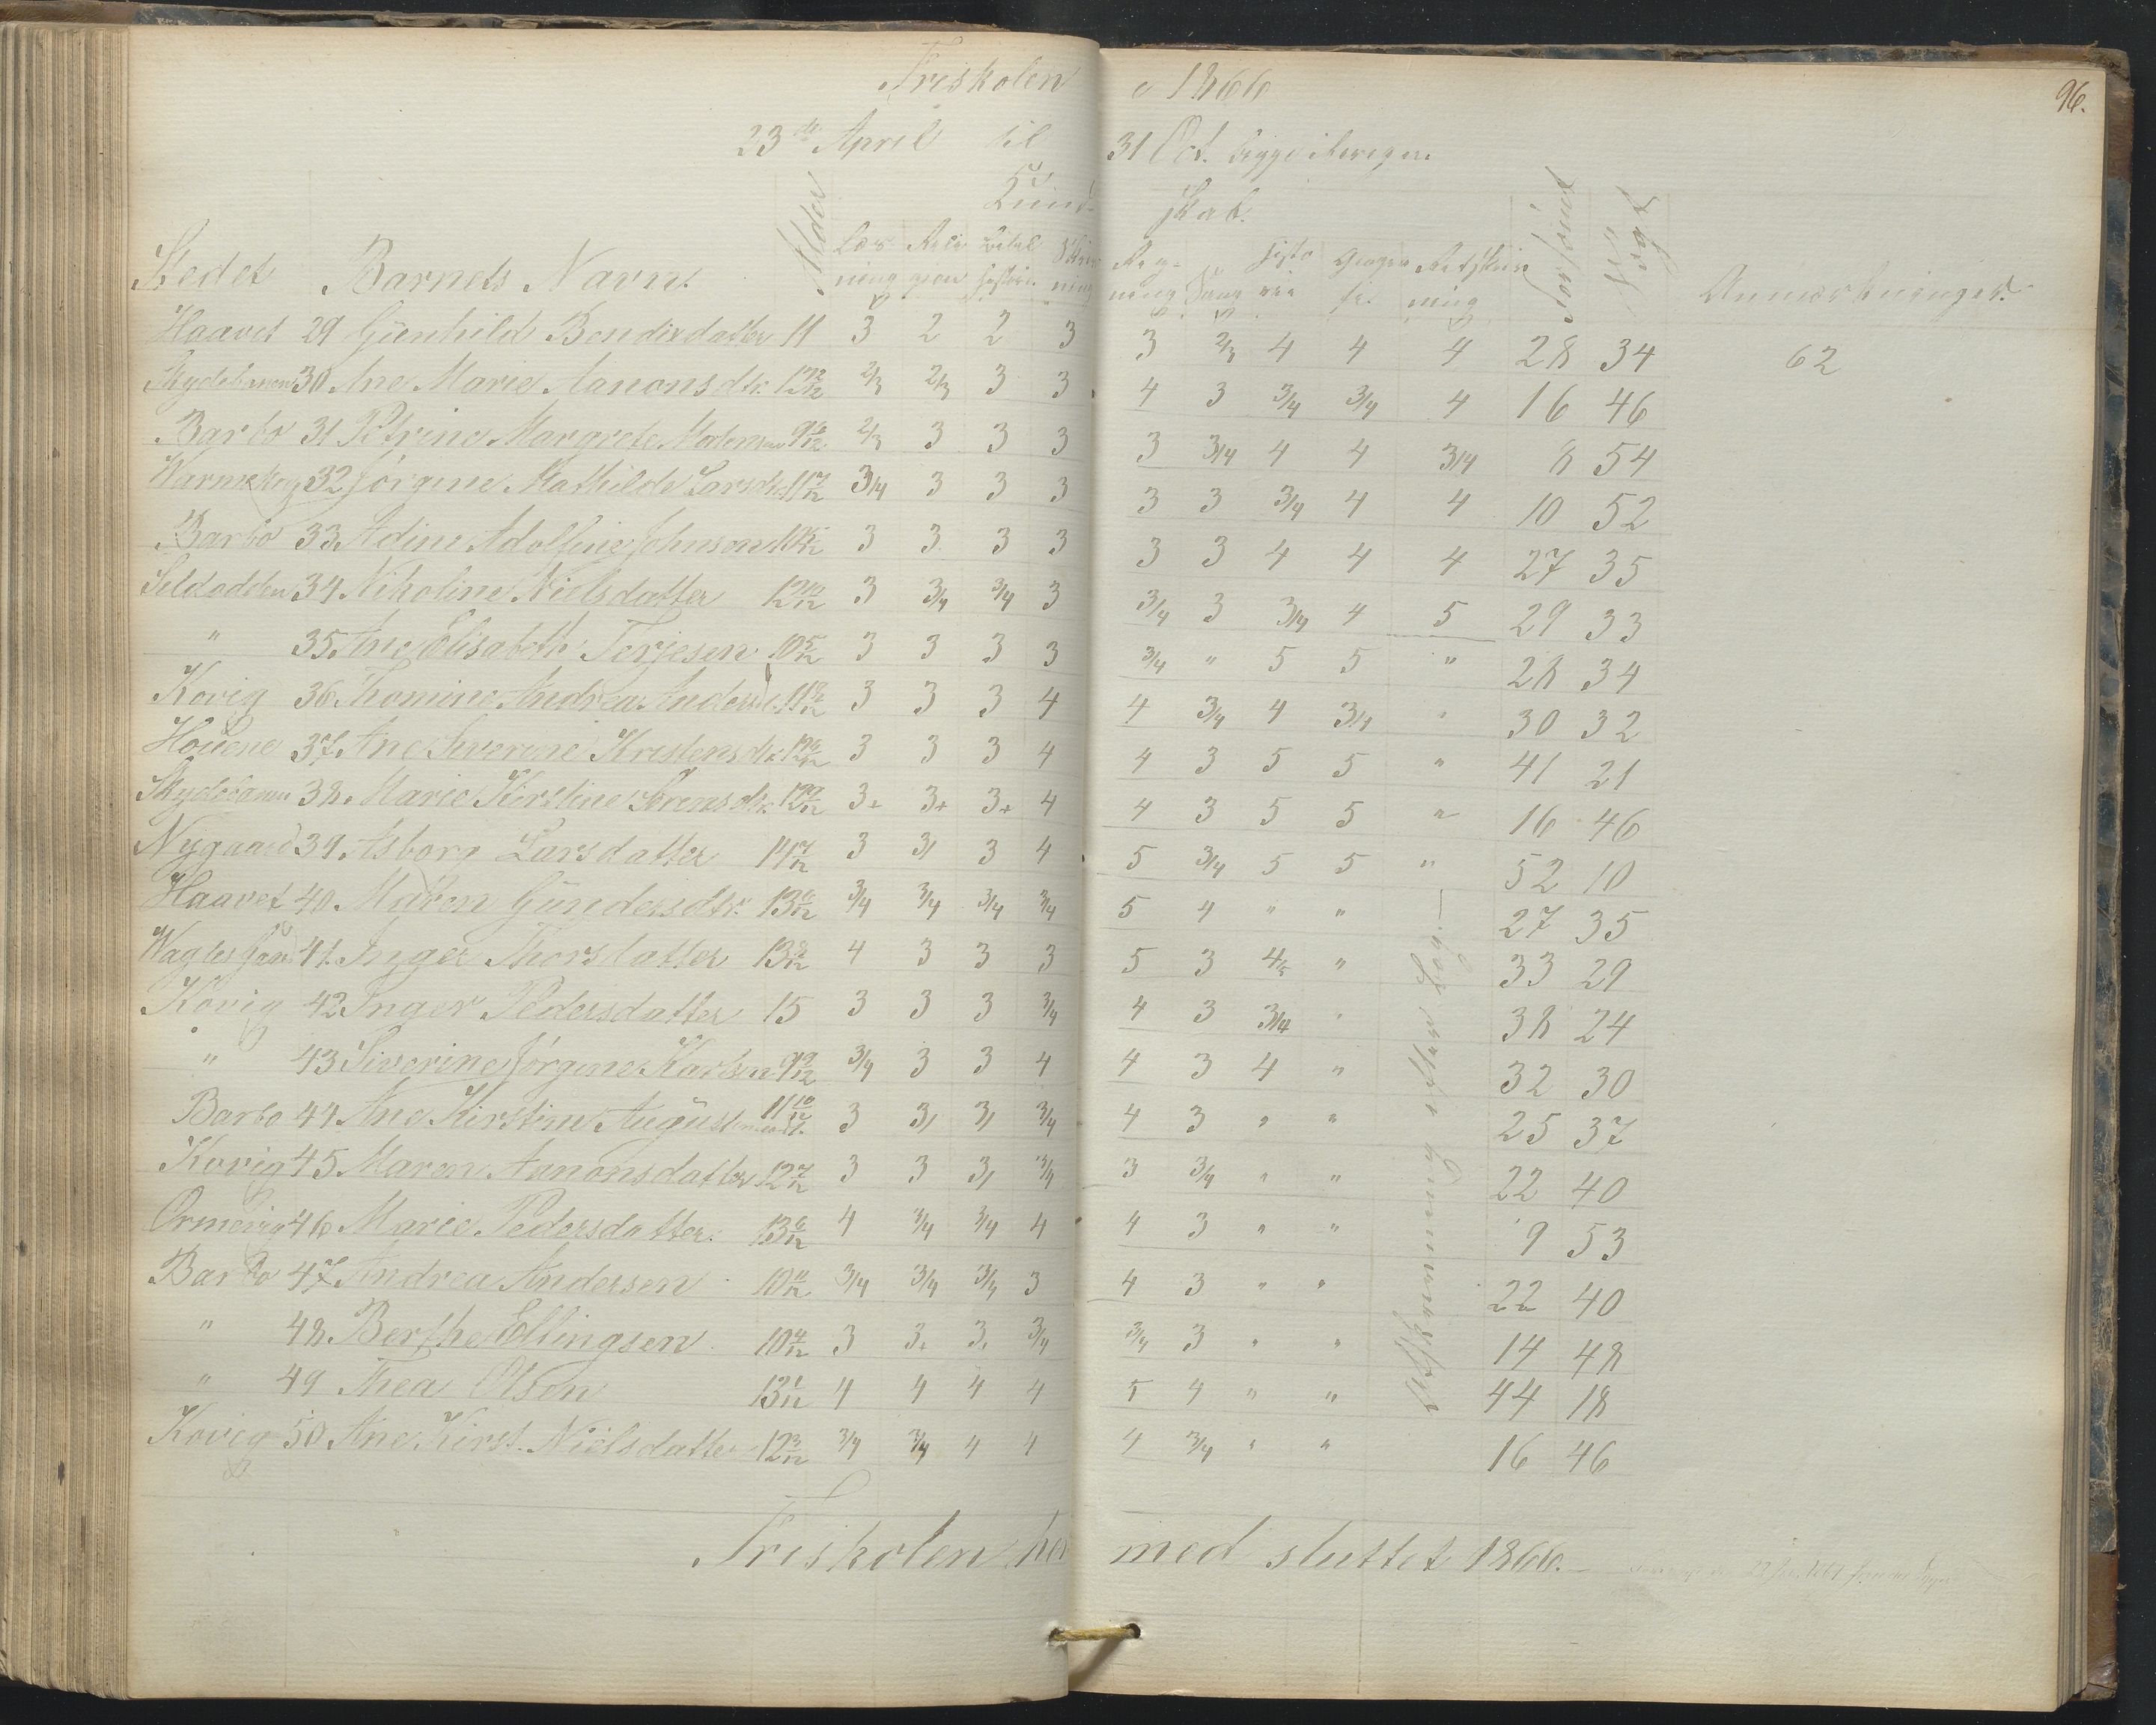 Friskolen i 1866
96.
23de April til 31 Oct. begge iberegn.
Kundskab.
Stedet Barnets Navn. Alder Læsning Religion Bibelhistorie Skrivning Regning Sang Historie Geografi Retskrivning Forsømt Søgt Anmærkninger.
Haavet 29 Gunhild Bendixdatter 11 3 2 2 3 3 2/3 4 4 4 28 34 62
30 Ane Marie Aanonsdtr. 2/3 2/3 3 3 4 3 3/4 3/4 4 16 46
Barbo 31 Petrine Margrete 9 2/3 3 3 3 3 3/4 4 4 3/4 8 54
32 Jørgine Mathilde Larsdtr. 11 7/12 3/4 3 3 3 3 3 3/4 4 4 10 52
Barbo 33 Adine Adolfine Johnson 3 3 3 3 3 3 4 4 4 27 35
34 Nikoline Nielsdatter 12 10/12 3 3/4 3/4 3 3/4 3 3/4 4 5 29 33
" 35 Ane Elisabeth Terjesen 10 5/12 3 3 3 3 3/4 " 5 5 " 28 34
Kovig 36 Tomine Andrea 3 3 3 4 4 3/4 4 3/4 " 30 32
37 Ane Severine Kristensdtr. 3 3 3 4 4 3 5 5 " 41 21
38. Marie Kirstine Sørensdtr. 3+ 3+ 3+ 4 4 3 5 5 " 16 46
Nygaard 39. Asborg Larsdatter 3 3/ 3 4 5 3/4 5 5 " 52 10
Haavet 40. Maren Gundersdtr. 3/4 3/4 3/4 3/4 5 4 " " 27 35
41. Inger Thorsdatter 4 3 3 3 5 3 4/5 " 33 29
Kovig 42 Inger Pedersdatter 15 3 3 3 3/4 4 3 3/4 " 38 24
" 43 Siverine Jørgine Karlsen 3/4 3 3 4 4 3 4 " 32 30
Barbo 44 Ane Kirstine 11 10/12 3 3/ 3/ 3/4 4 3 " " 25 37
Kovig 45 Maren Aanonsdatter 12 7/12 3 3 3/ 3/4 3 3/4 " " 22 40
46 Marie Pedersdatter. 4 3/4 3/4 4 4 3 " " 9 53
Barbo 47 Andrea Andersen 10 11/12 3/4 3/4 3/4 3 4 3 " " 22 40
" 48 Berthe Ellingsen 10 4/12 3 3. 3. 3/4 3/4 3 " " 14 48
" 49 Thea Olsen 4 4 4 4 5 4 " " 44 18
Kovig 50 Ane Kirst. Nielsdatter 12 3/12 3/4 3/4 4 4 4 3/4 " " 16 46
Friskolen hermed sluttet 1866.